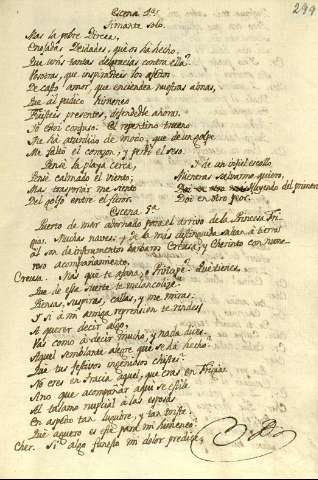 299
Escena 4ª
Timante solo.
Mas la pobre Dircea,
Enojadas Deidades, que os ha hecho,
Que unis tantas desgracias contra ella?
Vosotras, que inspirasteis los afectos
De casto amor, que encienden nuestras almas,
Que al pudico himeneo
Fuisteis presentes, defendedle ahora.
Yo estoi confuso. El repentino trueno
Me ha aturdido de modo, que de un golpe
Me faltó el corazon, y perdí el seso.
Pensé la playa cerca,
Pensé calmado el viento,
Mas trasportar me siento
Del golfo entre el furor.
Y de un infiel escollo
Mientras salvarme quiero,
Doi huyendo del primero
Doi en otro peor.
Escena 5ª
Puerto de mar adornado para el arrivo de la Princesa Fri-
gia. Muchas naves; y de la mas distinguida saltan à tierra
al son de instrumentos barbaros Creusa, y Cherinto con nume-
roso acompañamiento.
Creusa. Mas què te afana, ò Principe? Què tienes,
Que de essa suerte te melancoliza?
Piensas, suspiras, callas, y me miras:
Y si à mi amiga reprension te rindes
A querer decir algo,
Vas como à decir mucho, y nada dices.
Aquel semblante alegre què se ha hecho?
Què tus festivos ingeniosos chistes?
No eres en Tracia aquel, que eras en Frigia?
Sino que acompañar aqui se estila
Al talamo nupcial à las esposas
En aspeto tan lugubre, y tan triste,
Què aguero es este para mi himeneo?
Cher. Si algo funesto mi dolor predice,